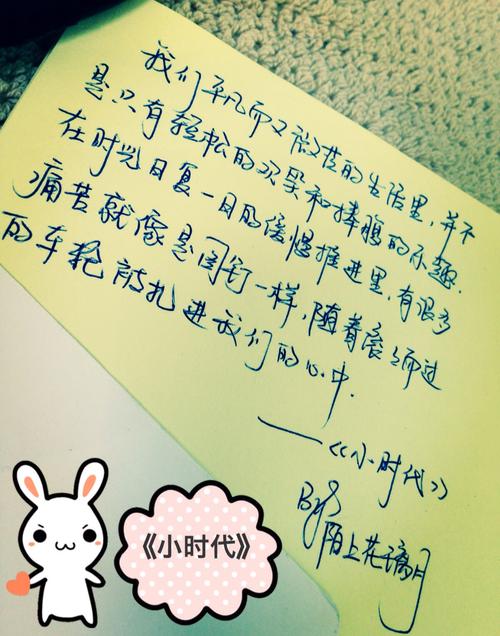 我们平凡而又微茫的生活里,并不
是只有轻松的欢笑和捧腹的乐趣.
在时光日复一日的缓慢推进里,有很多
痛苦就像是图钉一样,随着滚滚而过
的车轮被扎进我们的心中.
——《小时代》
By
陌上花漓月
《小时代》